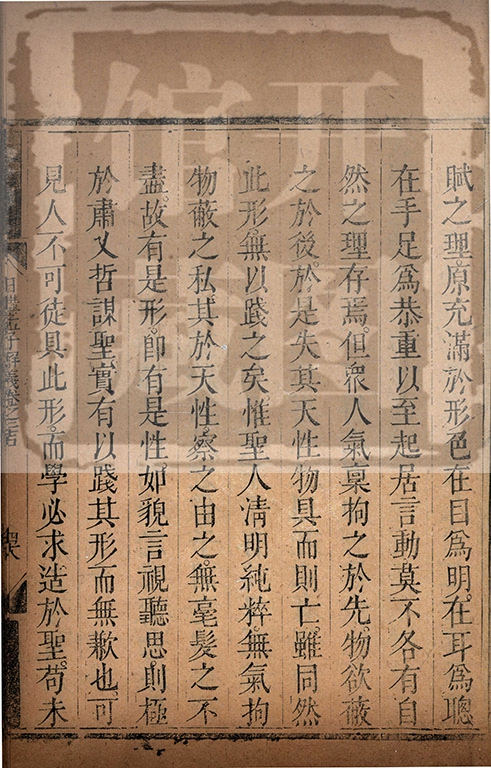 賦之理。原充滿於形色。在目爲明。在耳爲聰
在手足爲恭重。以至起居言動。莫不各有自
然之理存焉。但衆人氣稟拘之於先。物欲蔽
之於後。於是失其天性。物具而則亡。雖同然
此形。無以踐之矣。惟聖人淸明純粹。無氣拘
物蔽之私。其於天性。察之由之。無毫髮之不
盡。故有是形。卽有是性。如貌言視聽思。則極
於肅乂哲謀聖。實有以踐其形而無歉也。可
見人不可徒具此形。而學必求造於聖。苟未
日講孟子解義卷之